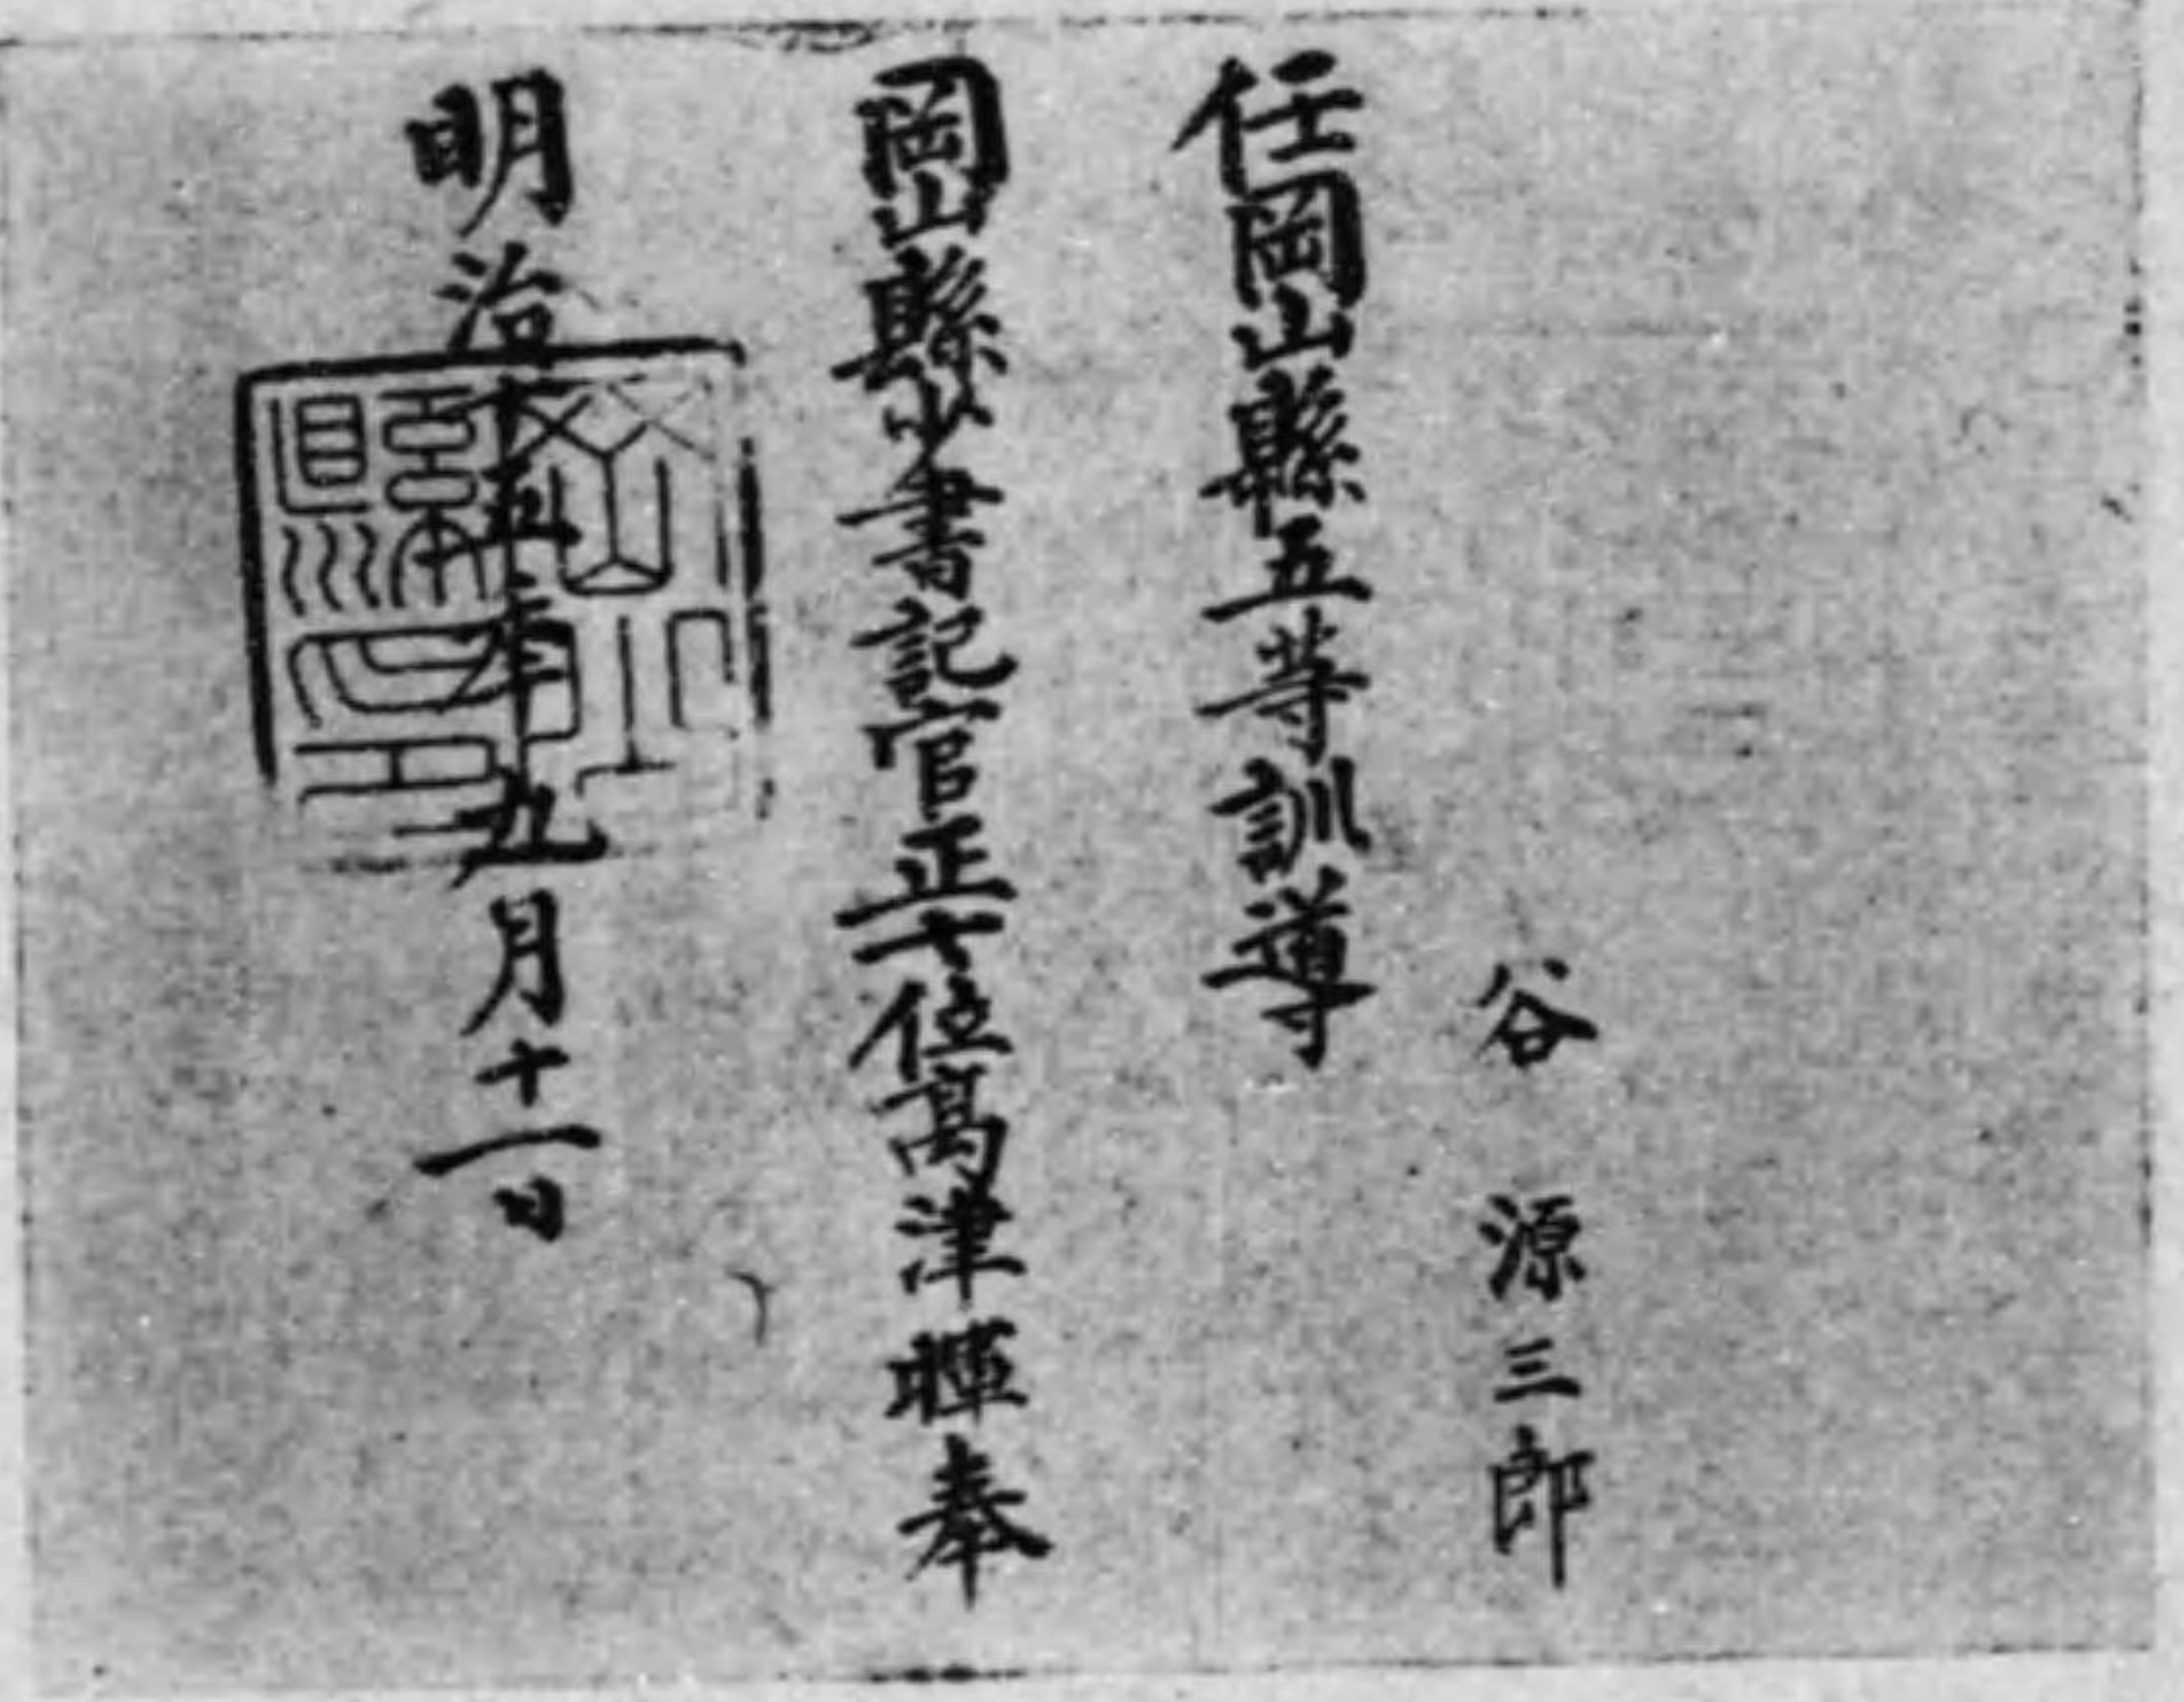 谷源三郎
任岡山縣五等訓導
岡山縣少書記官正七位髙津暉奉
明治十五年九月十一日
岡山縣印